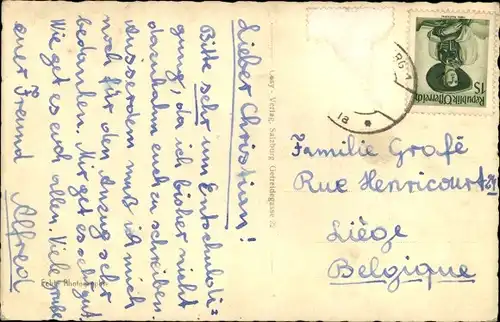 Lieber Christian!
Bitte sehr um Entschuldi=
gung, da ich bisher nicht
dazukam euch zu schreiben.
Ausserdem muß ich mich
noch für den Anzug sehr
bedanken. Mir get es sehr gut
Wie get es euch allen. Viele Grüße
euer Freund Alfred
Cosy - Verlag, Salzburg, Getreidegasse 22
Echte Photographie
Republik Österreich
1S
Familie Grafé
Rue Henricourt
Liège
Belgique